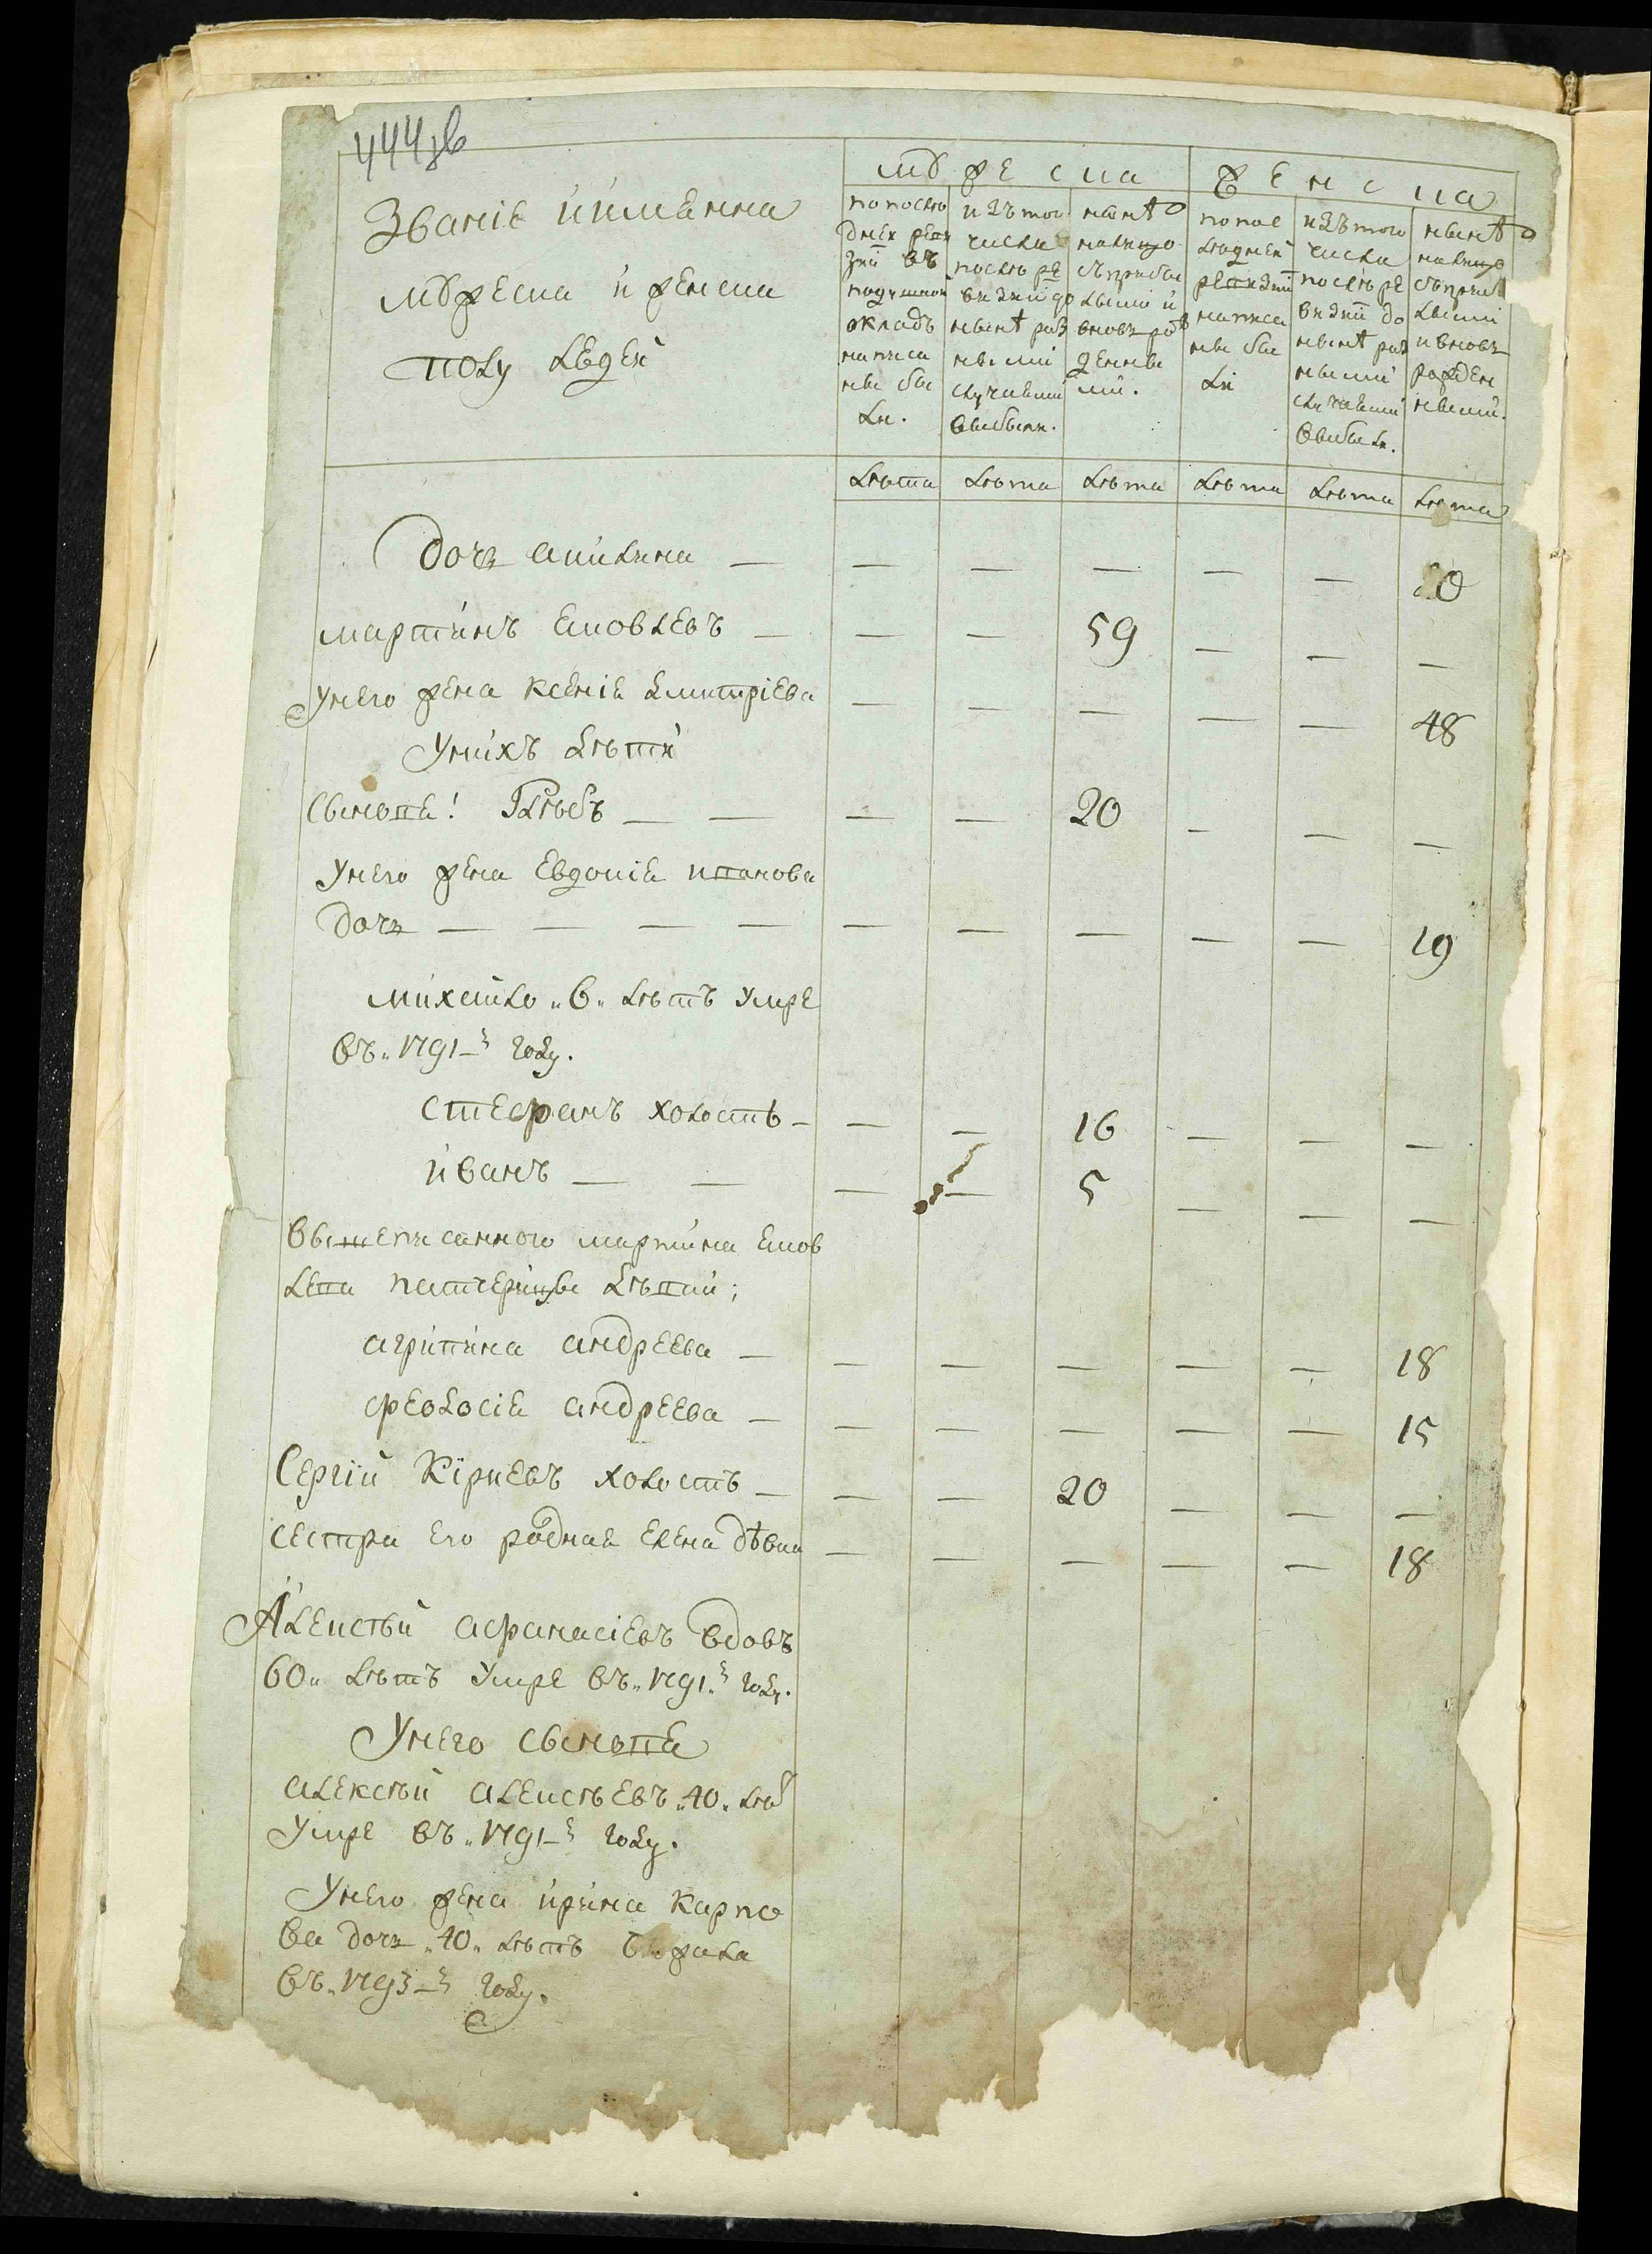 444зв
Званіе и имянна
мужеска и женска
полу людей
мужеска
женска
по после
дней реви
зии въ
подушной
окладъ
написа
ны бы
ли.
изъ того
числа
после ре
визии до
нынѣ раз
ными
случаями
выбыли.
нынѣ
налицо
съ прибы
лыми и
вновь ро
жденны
ми.
по пос
ледней
ревизии
написа
ны бы
ли
изъ того
числа
после ре
визии до
нынѣ раз
ными
случаями
выбыли.
нынѣ
налицо
съ прибы
лыми
и вновь
рожден
ными.
лѣта лѣта лѣта лѣта лѣта лѣта
дочь акилина — — — — — — 20
мартинъ яковлевъ — — — 59 — — —
у него жена ксения дмитріева — — — — — 48
у нихъ дѣти
сыновя! Глѣбъ — — — — 20 — — —
у него жена евдокія иванова
дочь — — — — — — — — — 19
михайло „6„ лѣтъ умре
въ„ 1791-з году.
стефанъ холостъ — — — 16 — — —
иванъ — — — — 5 — — —
вышеписанного мартина яков
лева патчерицы дѣвки;
агрипина андреева — — — — — — 18
феодосія андреева — — — — — — 15
Сергій Кірневъ холостъ — — — 20 — — —
сестра его родная елена дѣвка — — — — — 18
Алексѣй афанасіевъ вдовъ
60„ лѣтъ умре въ„ 1791„з году.
У него сыновя
алексѣй алексѣевъ „40„ лѣ
умре въ„ 1791-з году.
У него жена ирина карпо
ва дочь „40„ лѣтъ бѣжала
въ„ 1793-з году.